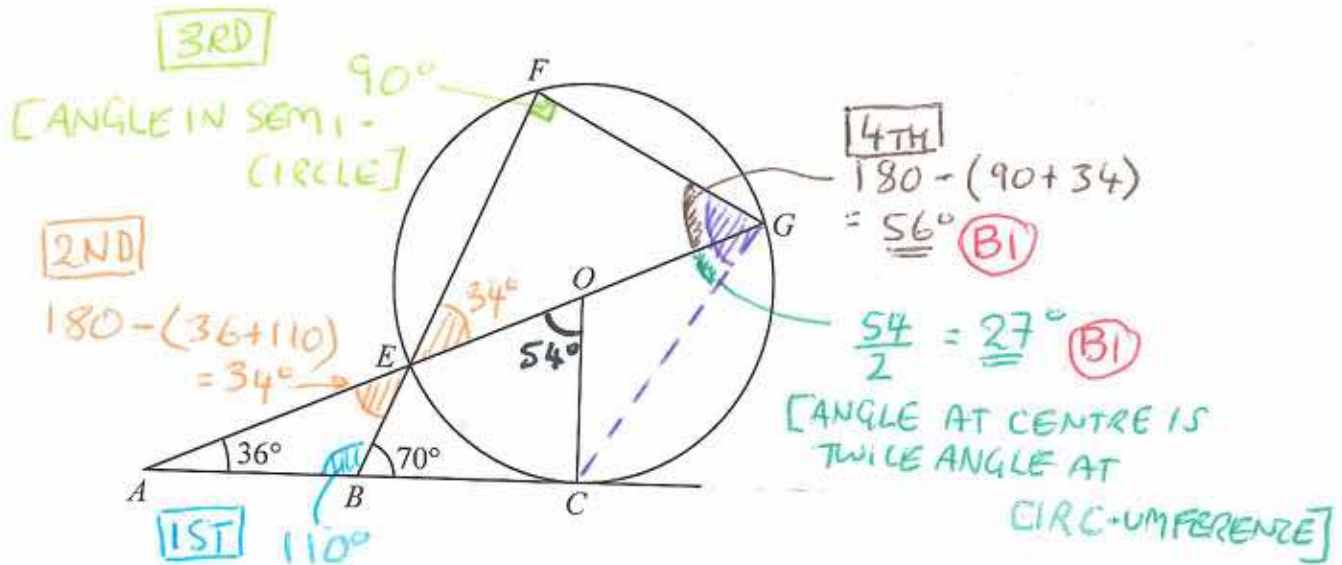 3RD
90°
[ANGLE IN SEMI-
CIRCLE]
F
4TH
180 - (90+34)
= 56° B1
G
2ND
180 - (36+110)
= 34°
34°
O
E
54°
54/2 = 27° B1
[ANGLE AT CENTRE IS
TWICE ANGLE AT
CIRC-UMFERENZE]
36°
70°
A
B
C
1ST
110°